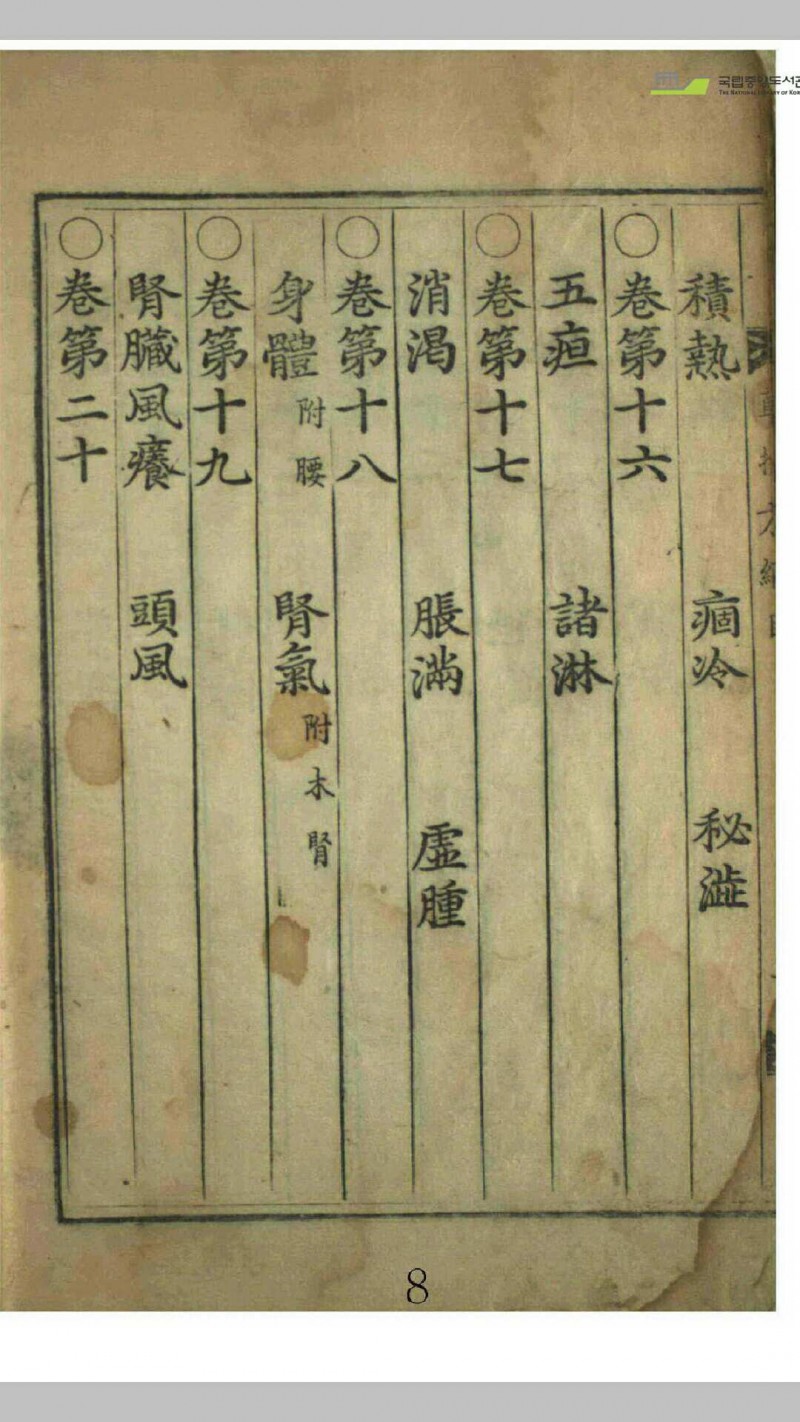 국립중앙도서관
THE NATIONAL LIBRARY OF KOR
方
積熱 痼冷 秘澁
○卷第十六
五疸 諸淋
○卷第十七
消渴 脹滿 虛腫
○卷第十八
身體 附腰 腎氣 附木腎
○卷第十九
腎臓風癢 頭風
○卷第二十
8